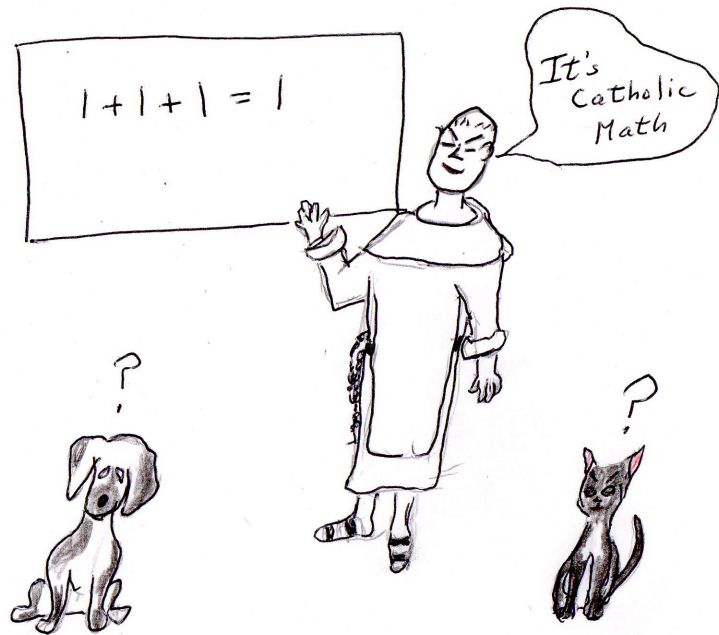 1 + 1 + 1 = 1
It's
Catholic
Math
?
?